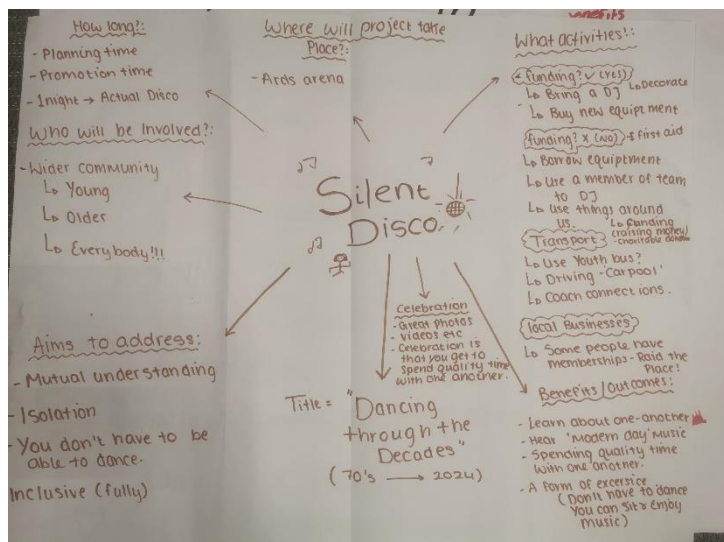 How long?:
- Planning time
- Promotion time
- 1night → Actual Disco
Who will be Involved?:
- Wider community
↳ Young
↳ Older
↳ Everybody!!!
Aims to address:
- Mutual understanding
- Isolation
- You don't have to be
able to dance.
Inclusive (fully)
Where will project take
Place?:
- Ards arena
Silent
Disco
Celebration
- Great photos
- videos etc
- Celebration is
that you get to
spend quality time
with one another.
Title = "Dancing
through the
Decades"
(70's → 2024)
What activities?:
funding? ✓ (YES)
↳ Bring a DJ ↳ Decorate
↳ Buy new equiptment
funding? x (NO) First aid
↳ Borrow equiptment
↳ Use a member of team
to DJ
↳ use things around
us. ↳ funding
(raising money)
Transport - charitable
↳ Use Youth bus?
↳ Driving - 'Carpool'
↳ Coach connections.
local Businesses
↳ Some people have
memberships - Raid the
Place!
Benefits/outcomes:
- Learn about one-another
- Hear 'Modern day' Music
- Spending quality time
with one another.
- A form of excersice
(Don't have to dance
You can sit & enjoy
music)